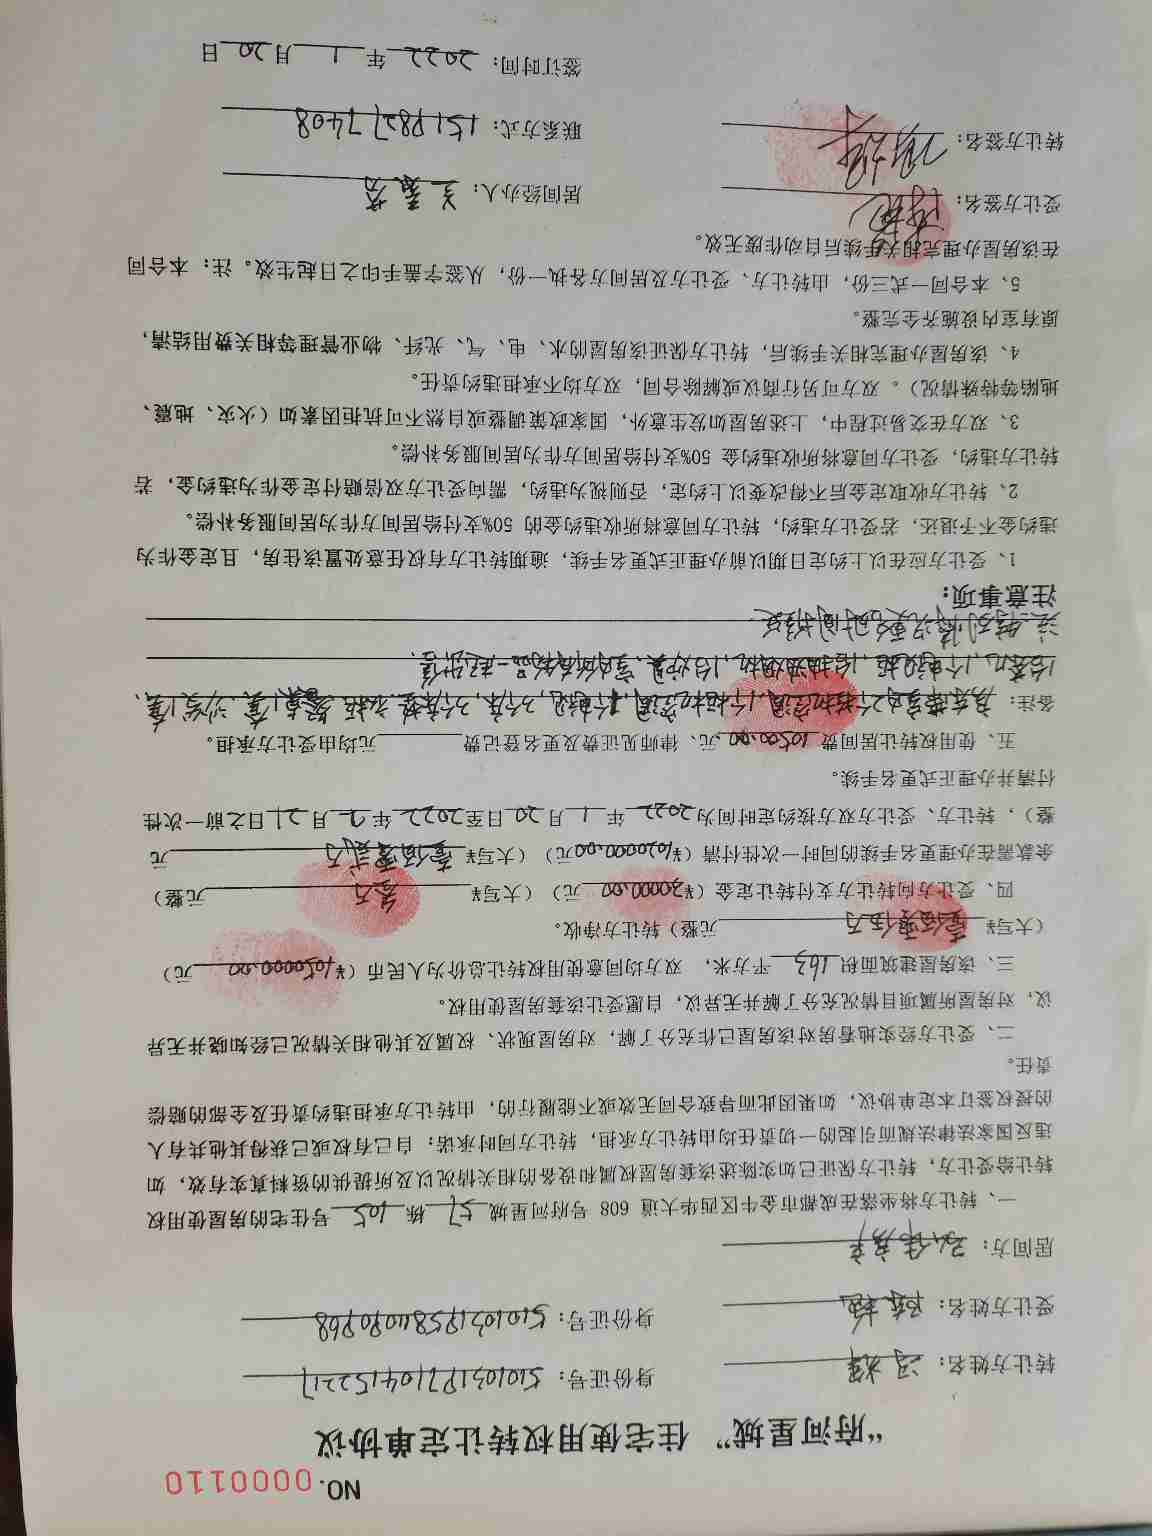 NO. 0000110
“府河星城” 住宅使用权转让定单协议
转让方姓名： 冯辉 身份证号：
受让方姓名： 陈艳 身份证号：
居间方：
一、转让方将坐落在成都市金牛区西华大道 608 号府河星城 57 栋 105 号住宅的房屋使用权
转让给受让方，转让方保证已如实陈述该套房屋权属和设备的相关情况以及所提供的资料真实有效，如
违反国家法律法规而引起的一切责任均由转让方承担，转让方同时承诺：自己有权或已获得其他共有人
的授权签订本定单协议，如果因此而导致合同无效或不能履行的，由转让方承担违约责任及全部的赔偿
责任。
二、受让方经实地看房对该房屋已作充分了解，对房屋现状、权属及其他相关情况已经知晓并无异
议，对房屋所属项目情况充分了解并无异议，自愿受让该套房屋使用权。
三、该房屋建筑面积 163 平方米，双方均同意使用权转让总价为人民币（¥1050000.00 元）
（大写¥ 壹佰零伍万 元整）转让方净收。
四、受让方向转让方支付转让定金（¥30000.00 元）（大写¥ 叁万 元整）
余款需在办理更名手续的同时一次性付清（¥1020000.00元）（大写¥ 壹佰零贰万 元
整）, 转让方、受让方双方按约定时间为2022 年 1 月 20 日至2022 年 2 月 21 日之前一次性
付清并办理正式更名手续。
五、使用权转让居间费 10500.00 元、律师见证费及更名登记费 元均由受让方承担。
备注：
注意事项：
1、受让方应在以上约定日期以前办理正式更名手续，逾期转让方有权任意处置该住房，且定金作为
违约金不予退还，若受让方违约，转让方同意将所收违约金的 50%支付给居间方作为居间服务补偿。
2、转让方收取定金后不得改变以上约定，否则视为违约，需向受让方双倍赔付定金作为违约金，若
转让方违约，受让方同意将所收违约金 50%支付给居间方作为居间服务补偿。
3、双方在交易过程中，上述房屋如发生意外，国家政策调整或自然不可抗拒因素如（火灾、地震、
地陷等特殊情况）。双方可另行商议或解除合同，双方均不承担违约责任。
4、该房屋办理完相关手续后，转让方保证该房屋的水、电、气、光纤、物业管理等相关费用结清，
原有室内设施齐全完整。
5、本合同一式三份，由转让方、受让方及居间方各执一份，从签字盖手印之日起生效。注：本合同
在该房屋办理完相关手续后自动作废无效。
受让方签名： 陈艳 居间经办人：
转让方签名： 冯辉 联系方式： 15198277408
签订时间： 2022 年 1 月 20 日